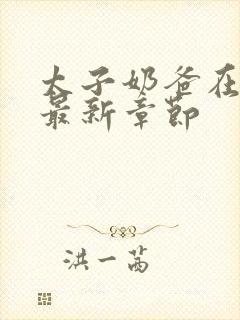 太子奶爸在
最新章节
洪一茜